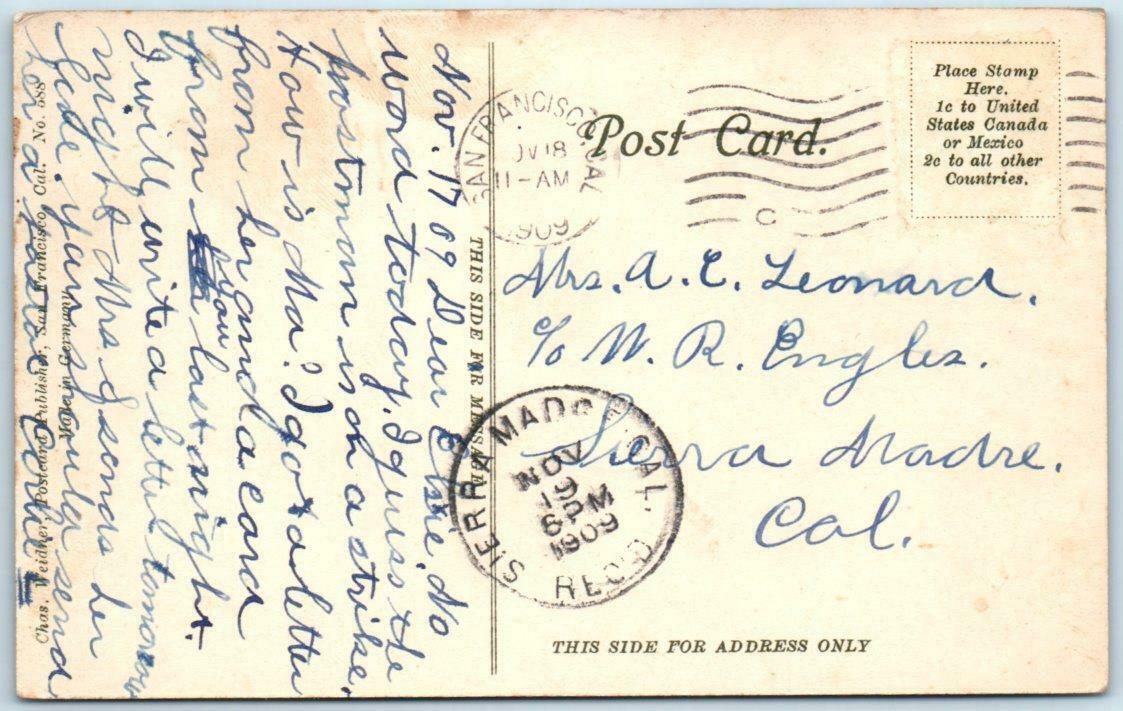 Nov. 17 09 Dear Elsie. No
word today. I guess the
postman is on a strike.
How is Ma? I got a letter
from her and a card
from you last night.
I will write a letter tomorrow
night. Mrs G sends her
love. You should send
her a card
THIS SIDE FOR MESSAGE
Chas. Weidner, Postcard Publisher, San Francisco, Cal. No. 588
Made in Germany
Post Card.
SAN FRANCISCO, CAL
NOV 18
11-AM
1909
C
Place Stamp
Here.
1c to United
States Canada
or Mexico
2c to all other
Countries.
Mrs. A. E. Leonard.
c/o W. R. Engles.
Sierra Madre.
Cal.
SIERRA MADRE, CAL.
NOV
19
6PM
1909
REC'D
THIS SIDE FOR ADDRESS ONLY